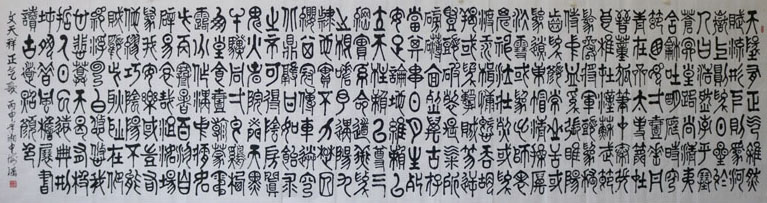 天地有正气雜然
賦流形下則為河
嶽上則為日星於
人曰浩然沛乎塞
蒼冥皇路當清夷
含和吐明庭時窮
節乃見一一垂丹
青在齊太史簡在
晉董狐筆在秦張
良椎在漢蘇武節
為嚴將軍頭為嵇
侍中血為張睢陽
齒為顏常山舌或
為遼東帽清操厲
冰雪或為出師表
鬼神泣壯烈或為
渡江楫慷慨吞胡
羯或為擊賊笏逆
豎頭破裂是氣所
磅礴凜烈萬古存
當其貫日月生死
安足論地維賴以
立天柱賴以尊三
綱實繫命道義為
之根嗟予遘陽九
隸也實不力楚囚
纓其冠傳車送窮
北鼎鑊甘如飴求
之不可得陰房闃
鬼火春院閟天黑
牛驥同一皂雞棲
鳳凰食一朝蒙霧
露分作溝中瘠如
此再寒暑百沴自
辟易哀哉沮洳場
為我安樂國豈有
他繆巧陰陽不能
賊顧此耿耿在仰
視浮雲白悠悠我
心悲曷有極哲人
日已遠典刑在夙
昔風檐展書
讀古道照顏色
文天祥正气歌 丙申年